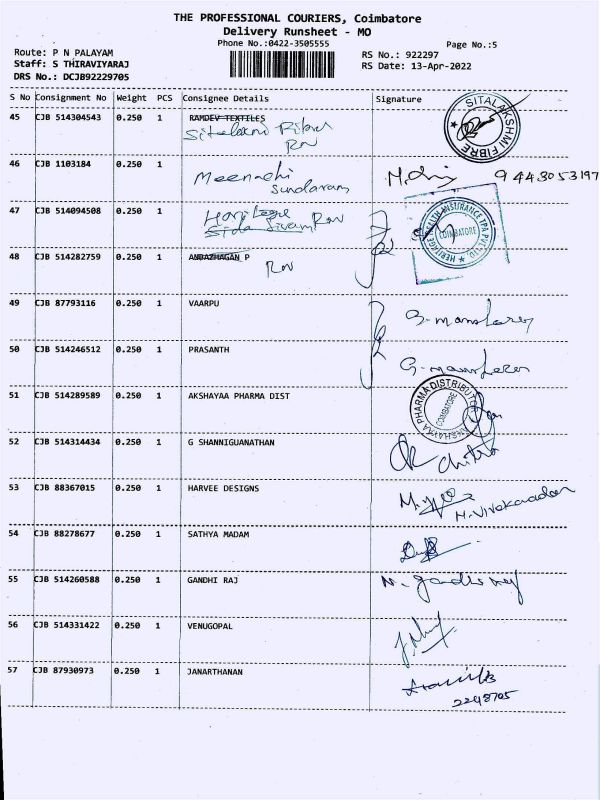 THE PROFESSIONAL COURIERS, Coimbatore
Delivery Runsheet - MO
Phone No.:0422-3505555
Page No.:5
Route: P N PALAYAM
Staff: S THIRAVIYARAJ
DRS No.: DCJB92229705
RS No.: 922297
RS Date: 13-Apr-2022
S No Consignment No Weight PCS Consignee Details Signature
45 CJB 514304543 0.250 1 RAMDEV TEXTILES
SITALAKSHMI FIBRE
46 CJB 1103184 0.250 1 Meenachi Sundaram 9443053197
47 CJB 514094508 0.250 1 Heritage
HERITAGE HEALTH INSURANCE TPA PVT. LTD.
COIMBATORE
48 CJB 514282759 0.250 1 ANBAZHAGAN P
49 CJB 87793116 0.250 1 VAARPU
50 CJB 514246512 0.250 1 PRASANTH
51 CJB 514289589 0.250 1 AKSHAYAA PHARMA DIST
AKSHAYYA PHARMA DISTRIBUTOR
COIMBATORE
52 CJB 514314434 0.250 1 G SHANNIGUANATHAN
Chitra
53 CJB 88367015 0.250 1 HARVEE DESIGNS
54 CJB 88278677 0.250 1 SATHYA MADAM
55 CJB 514260588 0.250 1 GANDHI RAJ
56 CJB 514331422 0.250 1 VENUGOPAL
57 CJB 87930973 0.250 1 JANARTHANAN
2248705